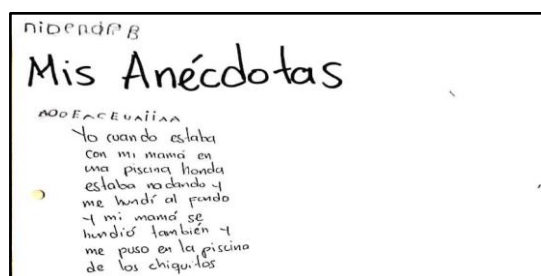 Mis Anécdotas
Yo cuando estaba
con mi mamá en
una piscina honda
estaba nadando y
me hundí al fondo
y mi mamá se
hundió también y
me puso en la piscina
de los chiquitos